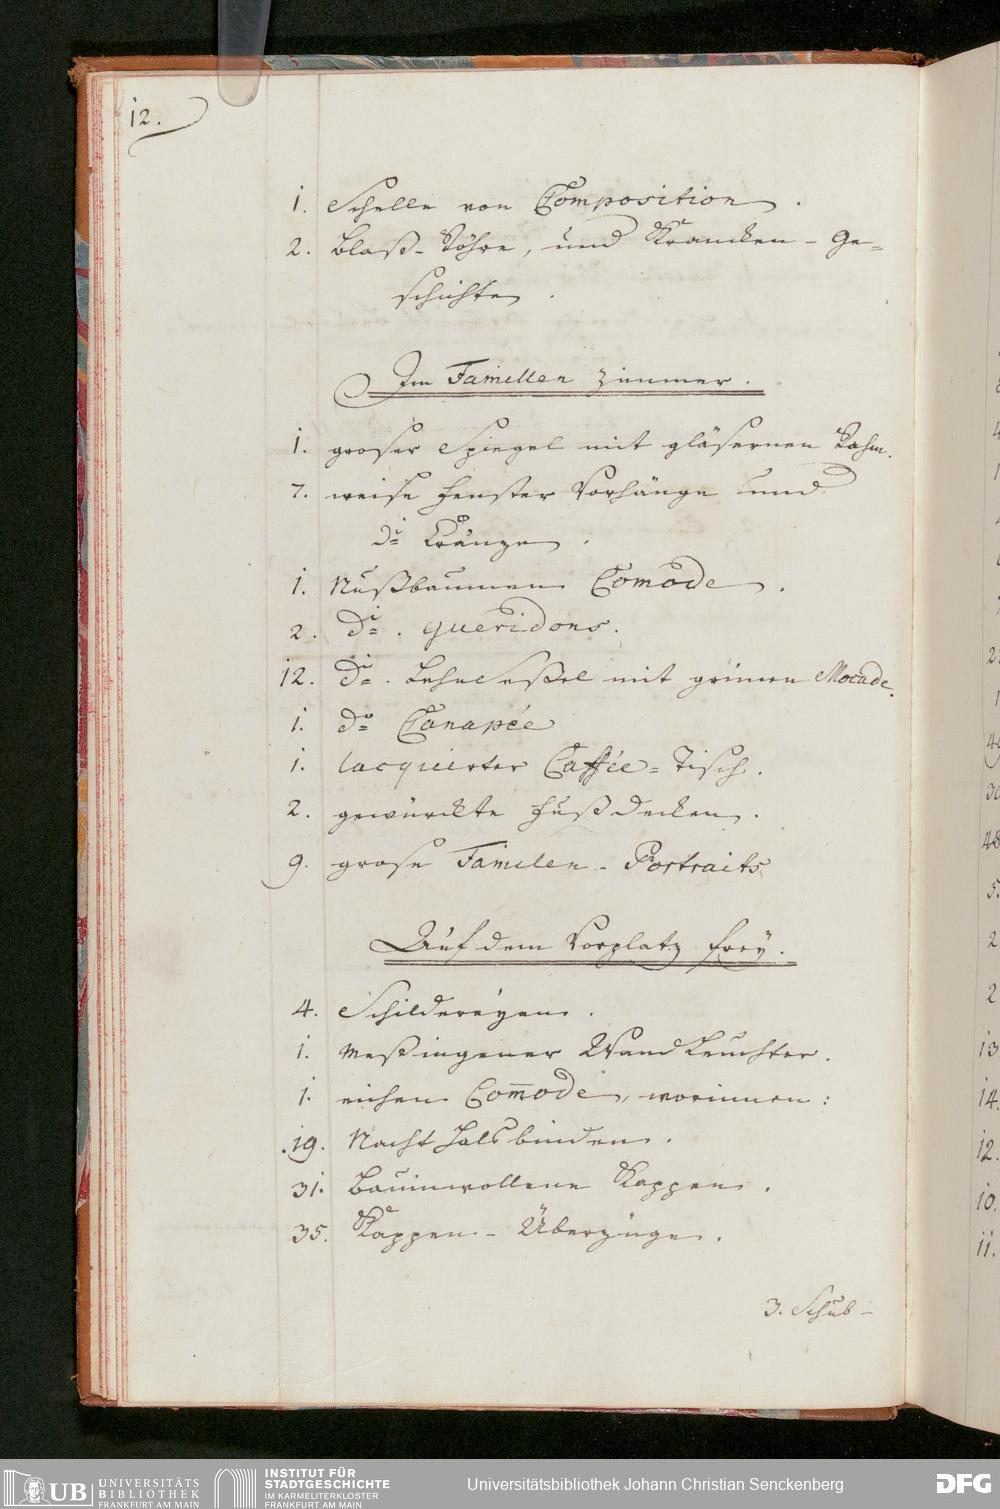 12.
1. Schelle von Composition.
2. Blaß-Röhre, und Krancken-Ge=
schichten.
Im Famillen Zimmer.
1. groser Spiegel mit gläsernen Rahm.
7. weise Fenster Vorhänge und
do. Kränzen.
1. Nußbaumen Comode.
2. do. Gueridons.
12. do. Lehn Seßel mit grünen Mocade.
1. do. Canapée
1. lacquierter Caffée=Tisch.
2. gewürckte Fuß decken.
9. grose Familen-Portraits
Auf dem Vorplatz frey.
4. Schildereyen.
1. Meßingener Wand Leuchter.
1. eichen Com̄ode, worinnen:
19. Nacht Hals binden.
31. Baumwollene Kappen.
35. Kappen-Überzüge.
3. Schub-
UB UNIVERSITÄTS
BIBLIOTHEK
FRANKFURT AM MAIN
INSTITUT FÜR
STADTGESCHICHTE
IM KARMELITERKLOSTER
FRANKFURT AM MAIN
Universitätsbibliothek Johann Christian Senckenberg
DFG